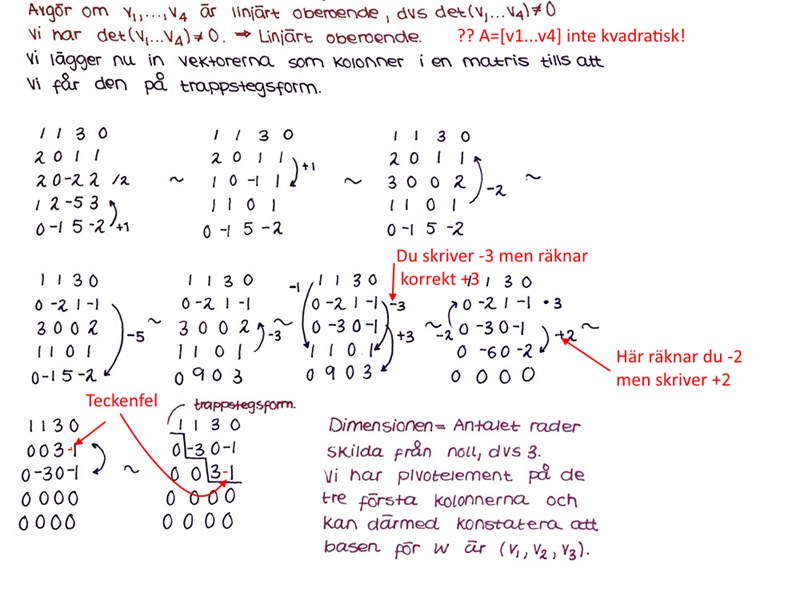 Avgör om v₁,...,v₄ är linjärt oberoende, dvs det(v₁...v₄)≠0
Vi har det(v₁...v₄)≠0. ⇒ Linjärt oberoende. ?? A=[v1...v4] inte kvadratisk!
Vi lägger nu in vektorerna som kolonner i en matris tills att
Vi får den på trappstegsform.
1 1 3 0
2 0 1 1
2 0 -2 2 /2
1 2 -5 3
0 -1 5 -2 +1
~
1 1 3 0
2 0 1 1 +1
1 0 -1 1
1 1 0 1
0 -1 5 -2
~
1 1 3 0
2 0 1 1
3 0 0 2 -2
1 1 0 1
0 -1 5 -2
~
Du skriver -3 men räknar
korrekt +3
1 1 3 0
0 -2 1 -1
3 0 0 2 -5
1 1 0 1
0 -1 5 -2
~
1 1 3 0
0 -2 1 -1
3 0 0 2 -3
1 1 0 1
0 9 0 3
~
-1 1 1 3 0
0 -2 1 -1 -3
0 -3 0 -1
1 1 0 1 +3
0 9 0 3
~
1 1 3 0
0 -2 1 -1 •3
-2 0 -3 0 -1
0 -6 0 -2 +2
0 0 0 0
~
Här räknar du -2
men skriver +2
Teckenfel
1 1 3 0
0 0 3 -1
0 -3 0 -1
0 0 0 0
0 0 0 0
~
trappstegsform.
1 1 3 0
0 -3 0 -1
0 0 3 -1
0 0 0 0
0 0 0 0
Dimensionen = Antalet rader
skilda från noll, dvs 3.
Vi har pivotelement på de
tre första kolonnerna och
kan därmed konstatera att
basen för W är (v₁, v₂, v₃).